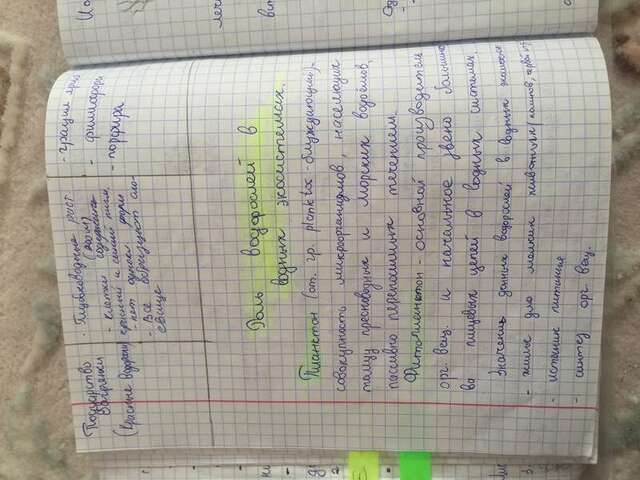 Подцарство
Багрянки
(Красные водоросли)
- Глубоководные раст
(200м)
- клетки содержат
красный и синий пигм.
- нет однокл форм
- Все образуют сло-
евище
- грацилярия
- филлофора
- порфира
Роль водорослей в
водных экосистемах.
Планктон (от. гр. planktos - блуждающий) -
совокупность микроорганизмов, населяющих
толщу пресноводных и морских водоёмов,
пассивно переносимых течением.
Фитопланктон - основной производитель
орг. вещ. и начальное звено большинст
ва пищевых цепей в водных системах.
Значение донных водорослей в водных экосист
- жилье для мелких животных
- источник питания
- синтез орг вещ.